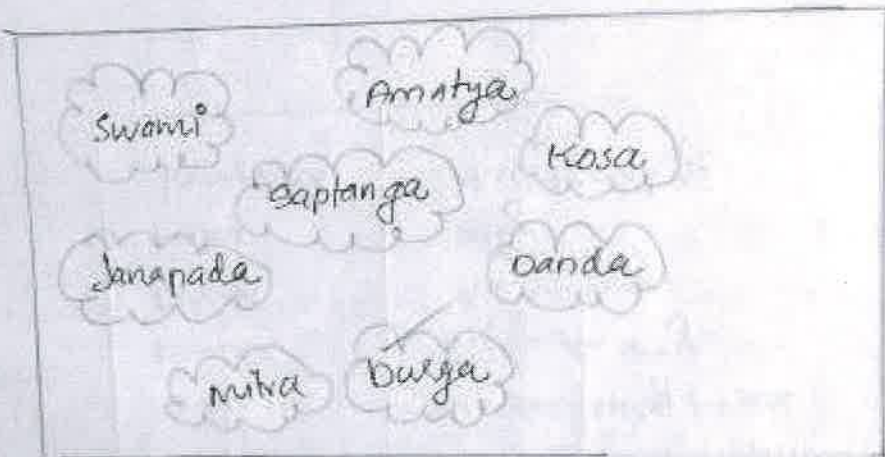 Amatya
Swami
Kosa
Saptanga
Janapada
Danda
Mitra
Durga